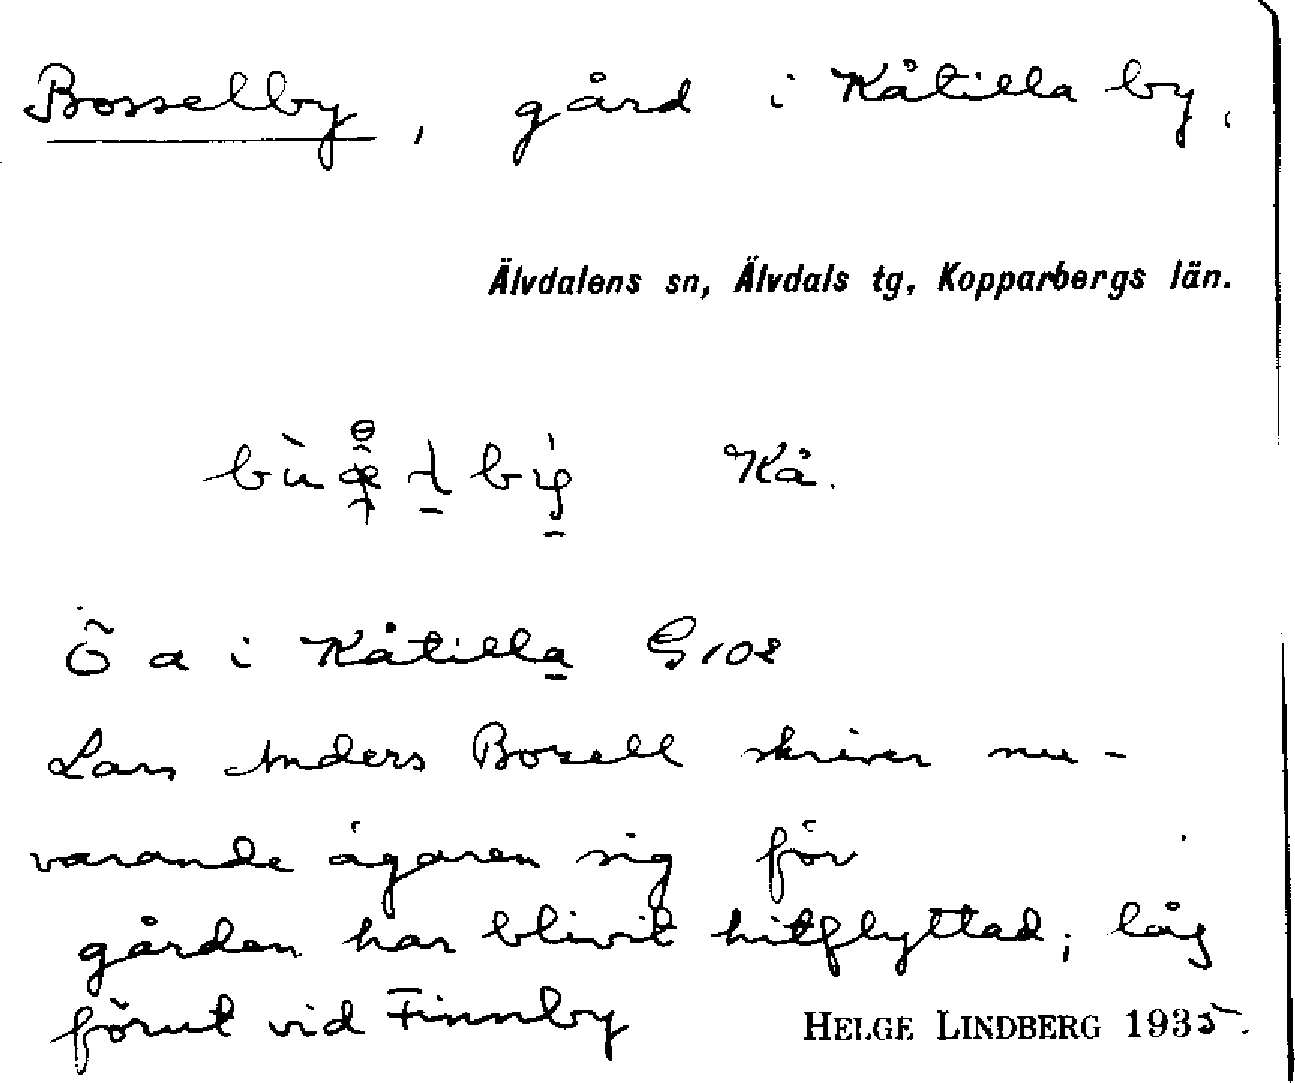 Bosselby, gård i Kåtilla by,
Älvdalens sn, Älvdals tg, Kopparbergs län.
Kå.
Ö a i Kåtilla G 102
Lars Anders Bosell skriver nu-
varande ägaren sig för
gården har blivit hitflyttad; låg
förut vid Finnby
HELGE LINDBERG 1935.